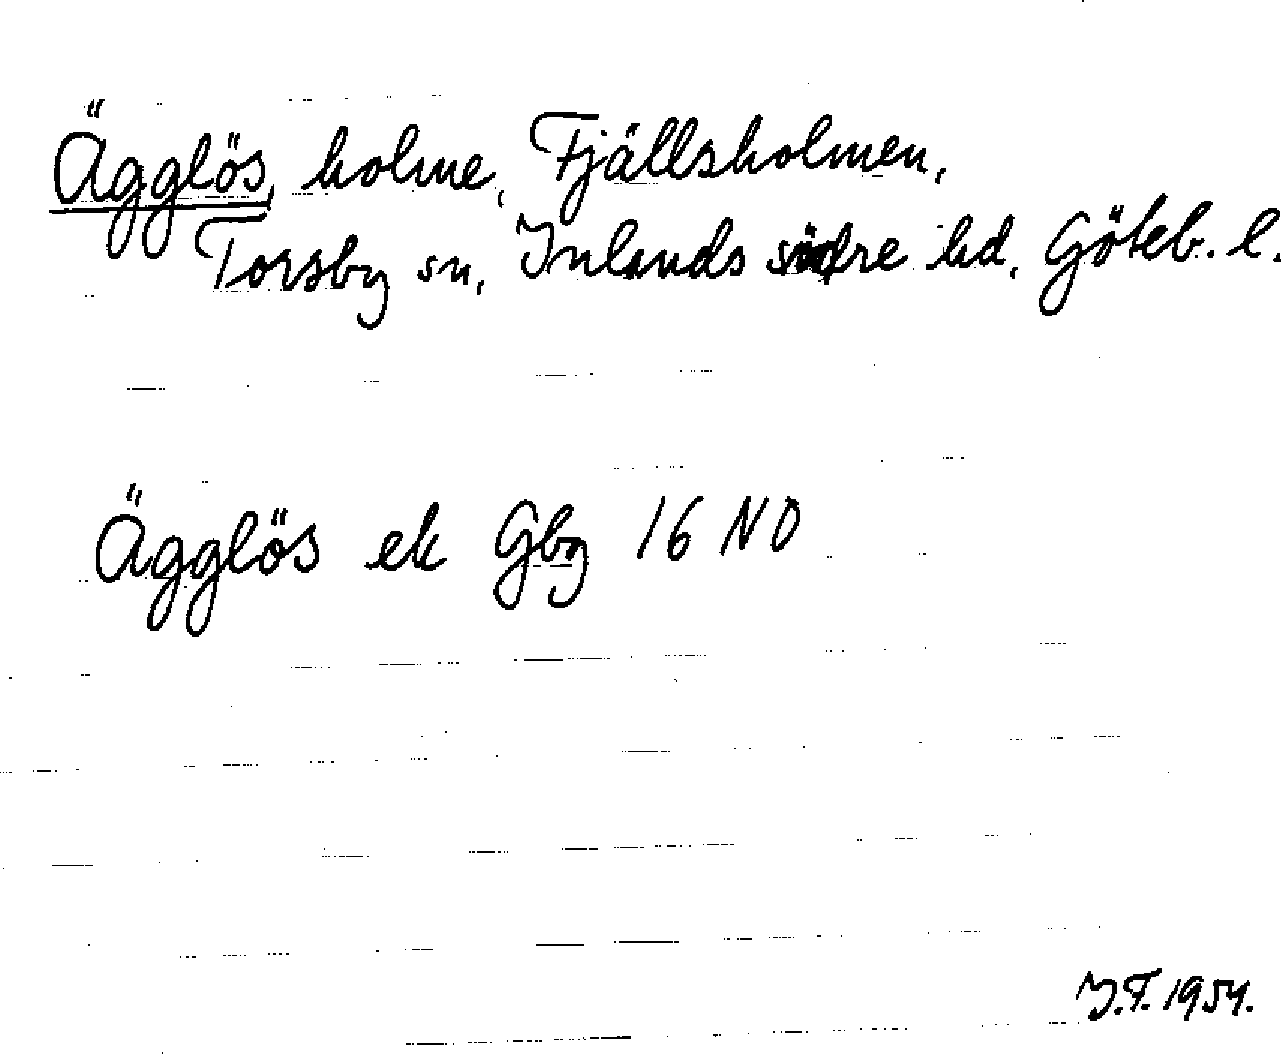 Ägglös, holme, Fjällsholmen,
Torsby sn, Inlands södre hd, Göteb. l.
Ägglös ek Gbg 16 NO
I.F. 1954.